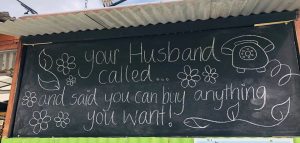 your Husband
called...
and said you can buy anything
you want!